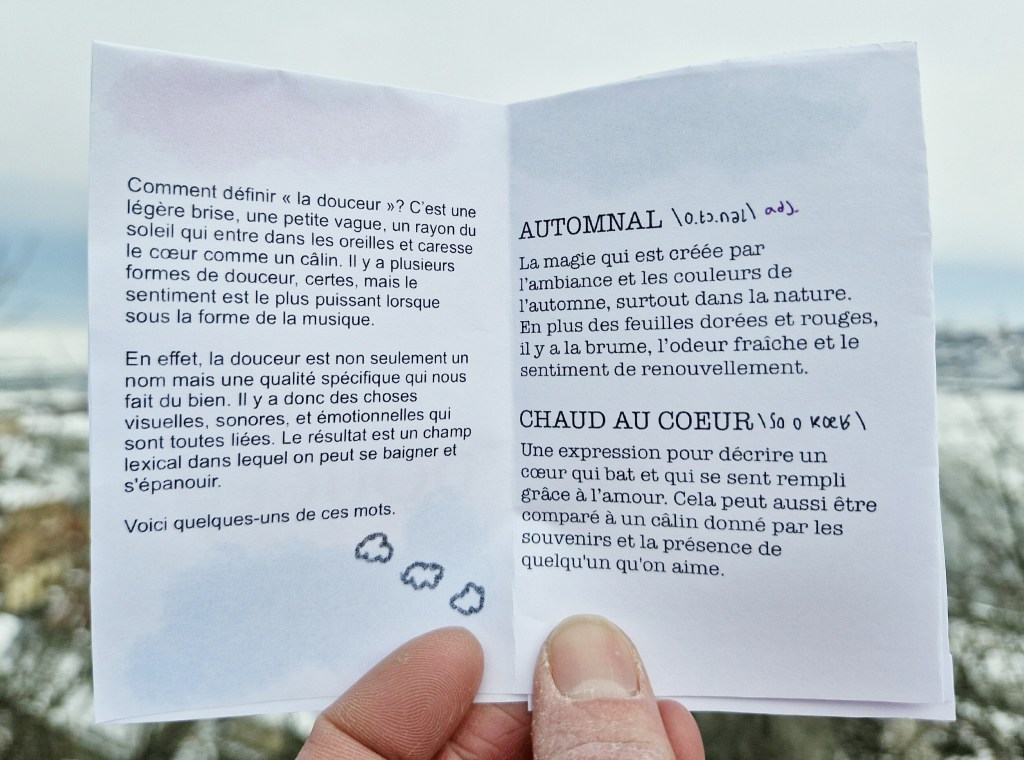 Comment définir « la douceur »? C'est une
légère brise, une petite vague, un rayon du
soleil qui entre dans les oreilles et caresse
le cœur comme un câlin. Il y a plusieurs
formes de douceur, certes, mais le
sentiment est le plus puissant lorsque
sous la forme de la musique.
En effet, la douceur est non seulement un
nom mais une qualité spécifique qui nous
fait du bien. Il y a donc des choses
visuelles, sonores, et émotionnelles qui
sont toutes liées. Le résultat est un champ
lexical dans lequel on peut se baigner et
s'épanouir.
Voici quelques-uns de ces mots.
AUTOMNAL \o.tɔ.nal\ adj.
La magie qui est créée par
l'ambiance et les couleurs de
l'automne, surtout dans la nature.
En plus des feuilles dorées et rouges,
il y a la brume, l'odeur fraîche et le
sentiment de renouvellement.
CHAUD AU COEUR \ʃo o kœʁ\
Une expression pour décrire un
cœur qui bat et qui se sent rempli
grâce à l'amour. Cela peut aussi être
comparé à un câlin donné par les
souvenirs et la présence de
quelqu'un qu'on aime.